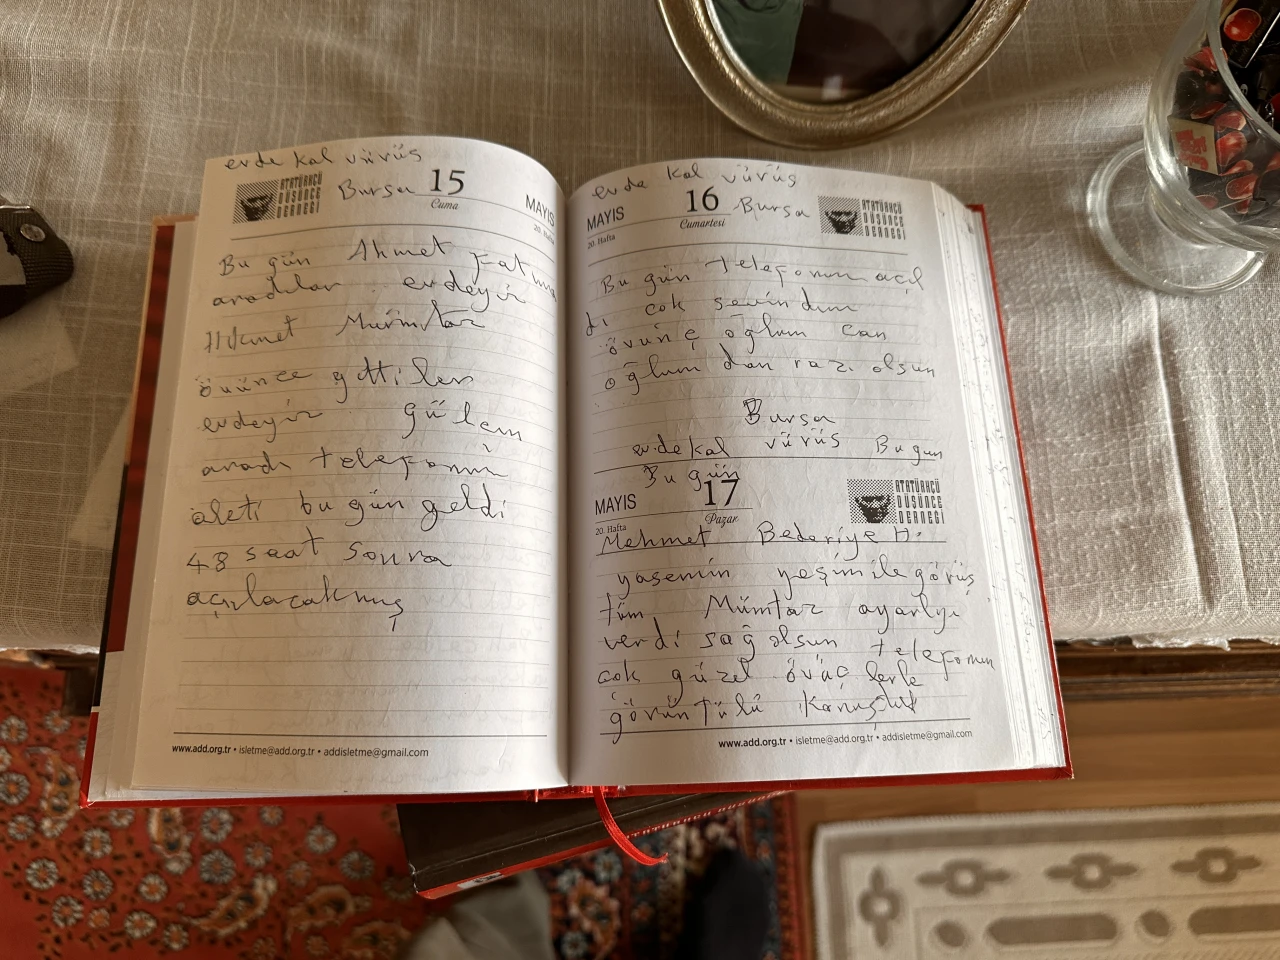 evde kal vürüs
ATATÜRKÇÜ
DÜŞÜNCE
DERNEĞİ
Bursa 15
Cuma
MAYIS
20. Hafta
Bu gün Ahmet Fatma
aradılar evdeyiz
Hikmet Mümtaz
övünce gittiler
evdeyiz gülem
aradı telefonun
aleti bu gün geldi
48 saat sonra
açılacakmış
www.add.org.tr • isletme@add.org.tr • addisletme@gmail.com
evde kal vürüs
MAYIS 16 Bursa
Cumartesi
20. Hafta
ATATÜRKÇÜ
DÜŞÜNCE
DERNEĞİ
Bu gün telefonum açıl
dı çok sevindim
övünç oğlum can
oğlumdan razı olsun
Bursa
evde kal vürüs Bu gun
Bu gün
MAYIS 17
Pazar
20. Hafta
ATATÜRKÇÜ
DÜŞÜNCE
DERNEĞİ
Mehmet Bederiye H.
yasemin yeşim ile görüş
tüm Mümtaz ayarlyı
verdi sağ olsun telefonun
çok güzel övüçlerle
görüntülü Konuştuk
www.add.org.tr • isletme@add.org.tr • addisletme@gmail.com